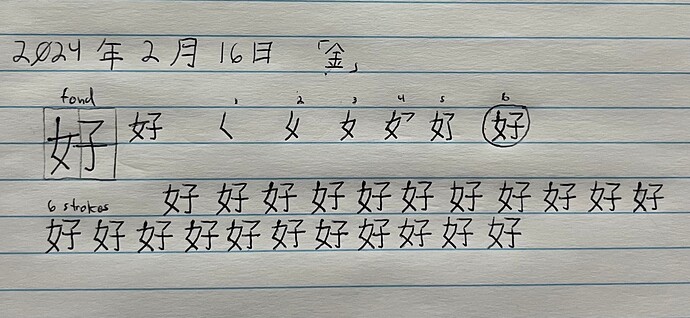 2024年2月16日 「金」
fond 1 2 3 4 5 6
好 好 く 乂 女 女フ 女了 好
6 strokes 好 好 好 好 好 好 好 好 好 好 好
好 好 好 好 好 好 好 好 好 好 好